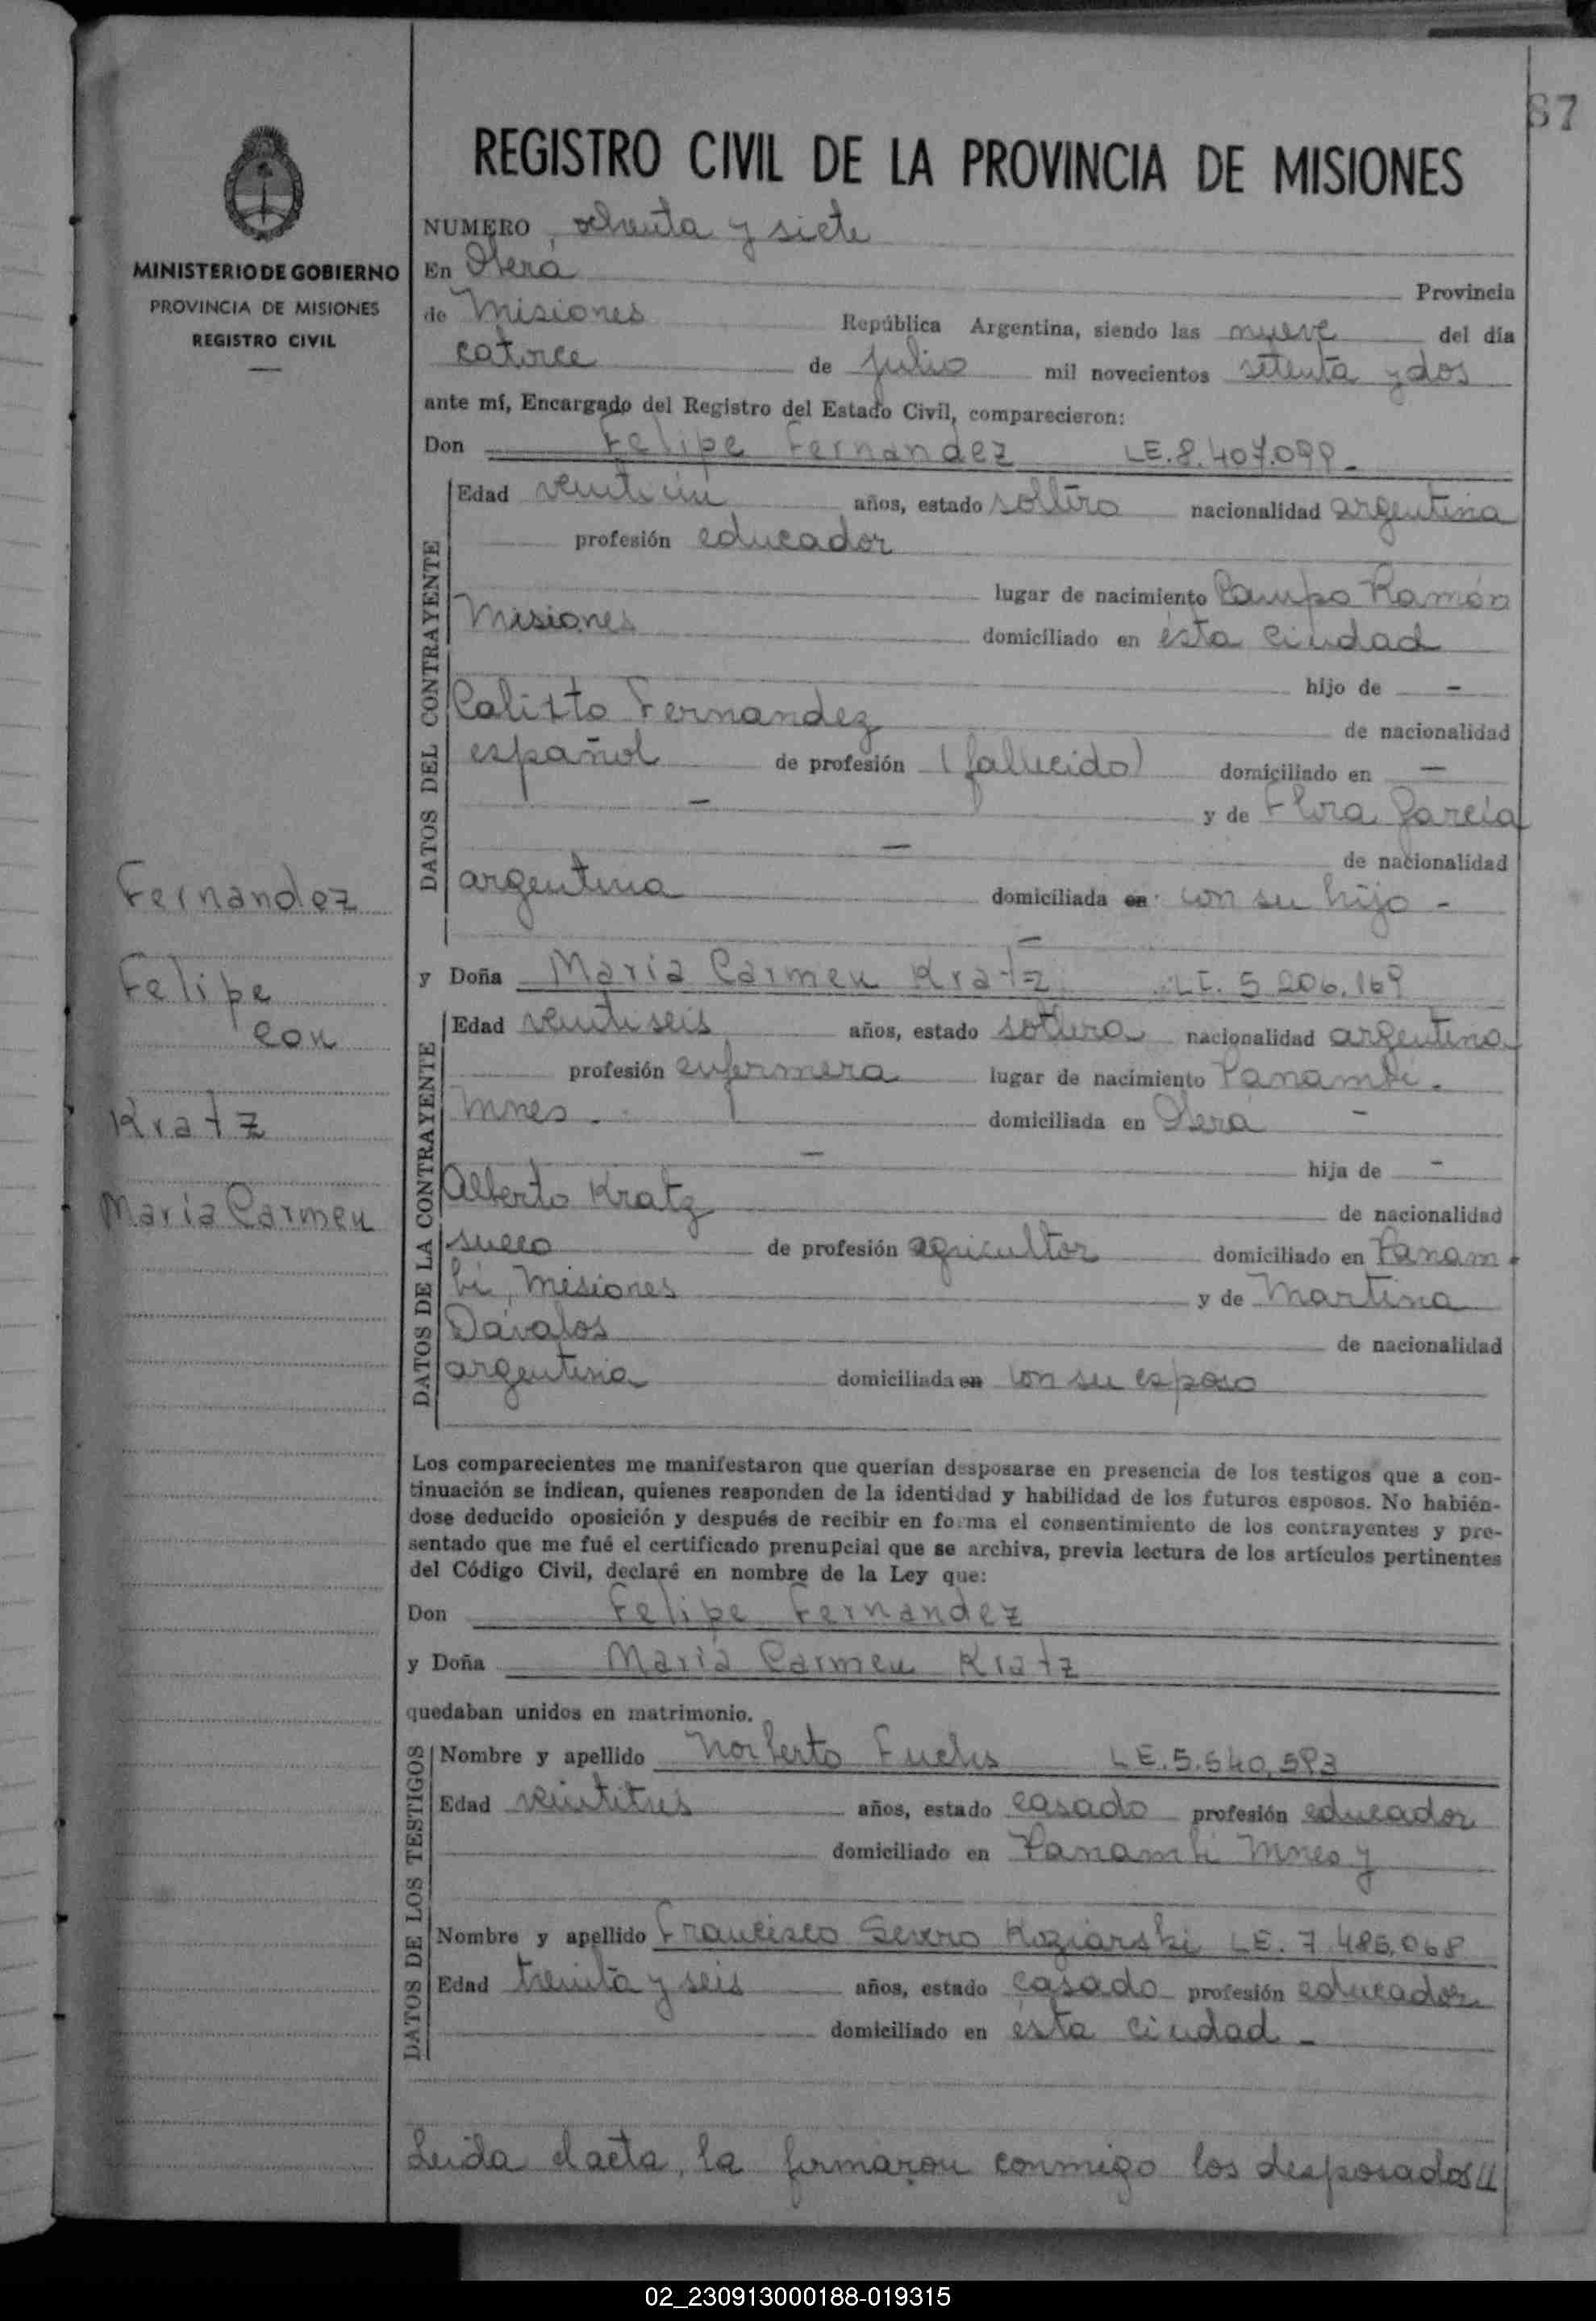 87
REGISTRO CIVIL DE LA PROVINCIA DE MISIONES
MINISTERIO DE GOBIERNO
PROVINCIA DE MISIONES
REGISTRO CIVIL
NUMERO, ochenta y siete
En Oberá Provincia
de Misiones República Argentina, siendo las nueve del día
catorce de julio mil novecientos setenta y dos
ante mí, Encargado del Registro del Estado Civil, comparecieron:
Don Felipe Fernandez LE. 8.407.099.-
DATOS DEL CONTRAYENTE
Edad años, estado soltero nacionalidad argentina
profesión educador
lugar de nacimiento Campo Ramón
Misiones domiciliado en ésta ciudad
hijo de -
Calixto Fernandez de nacionalidad
español de profesión (fallecido) domiciliado en -
- y de Flora García
- de nacionalidad
argentina domiciliada en con su hijo -
-
y Doña María Carmen Kratz 5.206.169
DATOS DE LA CONTRAYENTE
Edad veintiseis años, estado soltera nacionalidad argentina
profesión enfermera lugar de nacimiento Panambí.
Mnes. domiciliada en Oberá -
- hija de -
Alberto Kratz de nacionalidad
sueco de profesión agricultor domiciliado en Panam-
bí, Misiones y de Martina
Dávalos de nacionalidad
argentina domiciliada en con su esposo
Los comparecientes me manifestaron que querían desposarse en presencia de los testigos que a con-
tinuación se indican, quienes responden de la identidad y habilidad de los futuros esposos. No habién-
dose deducido oposición y después de recibir en forma el consentimiento de los contrayentes y pre-
sentado que me fué el certificado prenupcial que se archiva, previa lectura de los artículos pertinentes
del Código Civil, declaré en nombre de la Ley que:
Don Felipe Fernandez
y Doña María Carmen Kratz
quedaban unidos en matrimonio.
DATOS DE LOS TESTIGOS
Nombre y apellido Norberto Fuchs LE. 5.540.593
Edad veintitres años, estado casado profesión educador
domiciliado en Panambí Mnes y
Nombre y apellido Francisco Severo Koziarski LE. 7.485.068
Edad treinta y seis años, estado casado profesión educador
domiciliado en ésta ciudad -
Leída el acta, la firmaron conmigo los desposados //
Fernandez
Felipe
con
Kratz
María Carmen
02_230913000188-019315